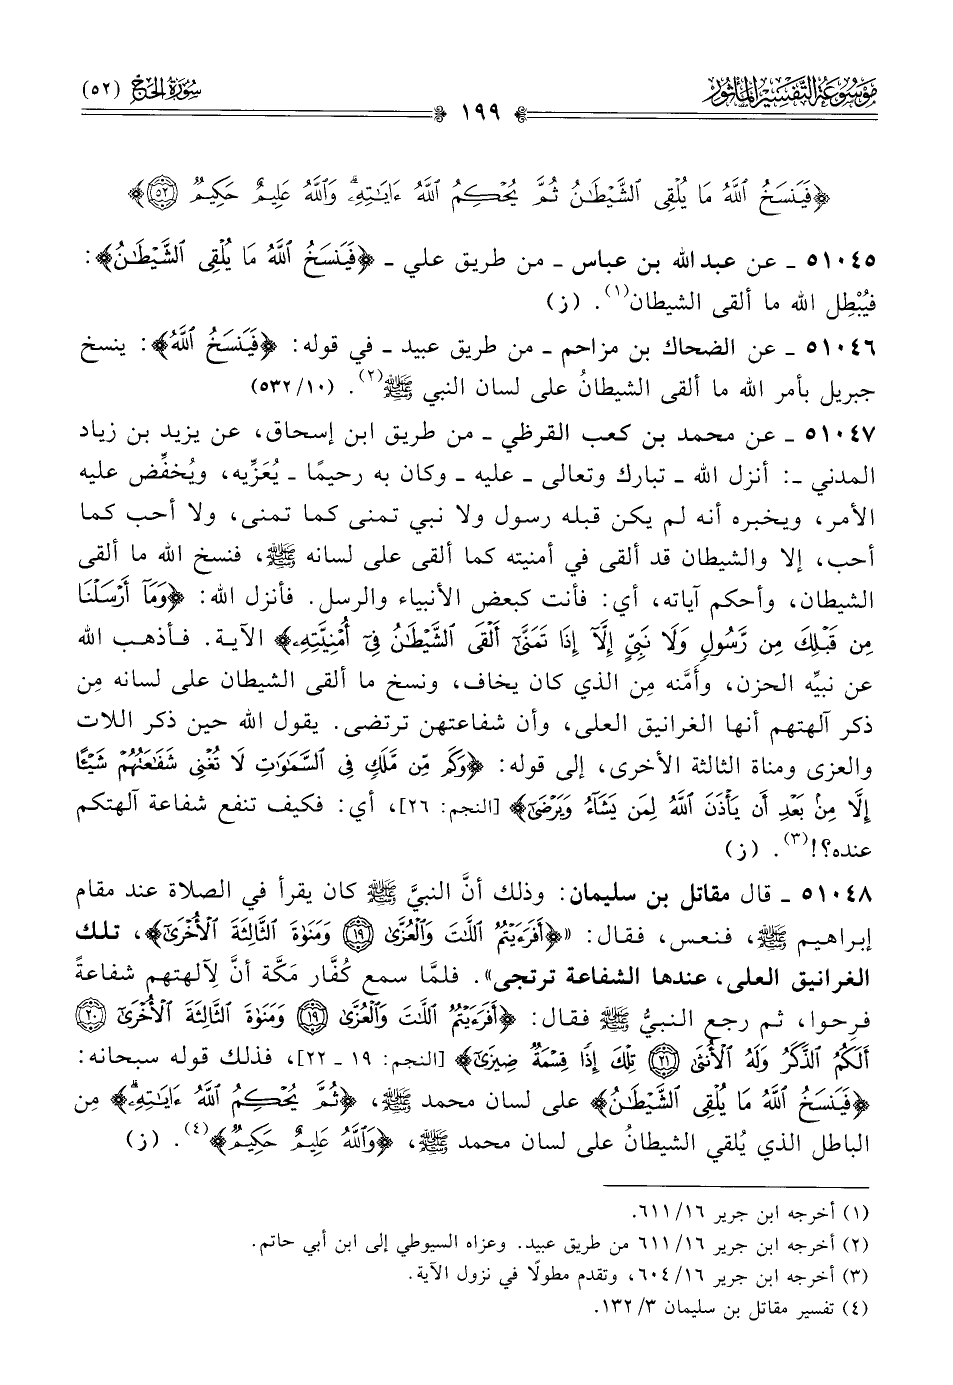 موسوعة التفسير المأثور
سورة الحج (٥٢)
١٩٩
﴿فَيَنسَخُ ٱللَّهُ مَا يُلْقِى ٱلشَّيْطَٰنُ ثُمَّ يُحْكِمُ ٱللَّهُ ءَايَٰتِهِۦۗ وَٱللَّهُ عَلِيمٌ حَكِيمٌ ۝٥٢﴾
٥١٠٤٥ ـ عن عبدالله بن عباس ـ من طريق علي ـ ﴿فَيَنسَخُ ٱللَّهُ مَا يُلْقِى ٱلشَّيْطَٰنُ﴾:
فيُبْطِل الله ما ألقى الشيطان(١). (ز)
٥١٠٤٦ ـ عن الضحاك بن مزاحم ـ من طريق عبيد ـ في قوله: ﴿فَيَنسَخُ ٱللَّهُ﴾: ينسخ
جبريل بأمر الله ما ألقى الشيطانُ على لسان النبي ﷺ(٢). (٥٣٢/١٠)
٥١٠٤٧ ـ عن محمد بن كعب القرظي ـ من طريق ابن إسحاق، عن يزيد بن زياد
المدني ـ: أنزل الله ـ تبارك وتعالى ـ عليه ـ وكان به رحيمًا ـ يُعَزِّيه، ويُخفِّض عليه
الأمر، ويخبره أنه لم يكن قبله رسول ولا نبي تمنى كما تمنى، ولا أحب كما
أحب، إلا والشيطان قد ألقى في أمنيته كما ألقى على لسانه ﷺ، فنسخ الله ما ألقى
الشيطان، وأحكم آياته، أي: فأنت كبعض الأنبياء والرسل. فأنزل الله: ﴿وَمَآ أَرْسَلْنَا
مِن قَبْلِكَ مِن رَّسُولٍ وَلَا نَبِىٍّ إِلَّآ إِذَا تَمَنَّىٰٓ أَلْقَى ٱلشَّيْطَٰنُ فِىٓ أُمْنِيَّتِهِۦ﴾ الآية. فأذهب الله
عن نبيِّه الحزن، وأمَّنه مِن الذي كان يخاف، ونسخ ما ألقى الشيطان على لسانه مِن
ذكر آلهتهم أنها الغرانيق العلى، وأن شفاعتهن ترتضى. يقول الله حين ذكر اللات
والعزى ومناة الثالثة الأخرى، إلى قوله: ﴿وَكَم مِّن مَّلَكٍ فِى ٱلسَّمَٰوَٰتِ لَا تُغْنِى شَفَٰعَتُهُمْ شَيْـًٔا
إِلَّا مِنۢ بَعْدِ أَن يَأْذَنَ ٱللَّهُ لِمَن يَشَآءُ وَيَرْضَىٰٓ﴾ [النجم: ٢٦]، أي: فكيف تنفع شفاعة آلهتكم
عنده؟!(٣). (ز)
٥١٠٤٨ ـ قال مقاتل بن سليمان: وذلك أنَّ النبيَّ ﷺ كان يقرأ في الصلاة عند مقام
إبراهيم ﷺ، فنعس، فقال: «﴿أَفَرَءَيْتُمُ ٱللَّٰتَ وَٱلْعُزَّىٰ ۝١٩ وَمَنَوٰةَ ٱلثَّالِثَةَ ٱلْأُخْرَىٰٓ﴾، تلك
الغرانيق العلى، عندها الشفاعة ترتجى». فلمَّا سمع كُفَّار مَكَّة أنَّ لِآلهتهم شفاعةً
فرحوا، ثم رجع النبيُّ ﷺ فقال: ﴿أَفَرَءَيْتُمُ ٱللَّٰتَ وَٱلْعُزَّىٰ ۝١٩ وَمَنَوٰةَ ٱلثَّالِثَةَ ٱلْأُخْرَىٰٓ ۝٢٠
أَلَكُمُ ٱلذَّكَرُ وَلَهُ ٱلْأُنثَىٰ ۝٢١ تِلْكَ إِذًا قِسْمَةٌ ضِيزَىٰٓ﴾ [النجم: ١٩ ـ ٢٢]، فذلك قوله سبحانه:
﴿فَيَنسَخُ ٱللَّهُ مَا يُلْقِى ٱلشَّيْطَٰنُ﴾ على لسان محمد ﷺ، ﴿ثُمَّ يُحْكِمُ ٱللَّهُ ءَايَٰتِهِۦۗ﴾ مِن
الباطل الذي يُلقي الشيطانُ على لسان محمد ﷺ، ﴿وَٱللَّهُ عَلِيمٌ حَكِيمٌ﴾(٤). (ز)
(١) أخرجه ابن جرير ٦١١/١٦.
(٢) أخرجه ابن جرير ٦١١/١٦ من طريق عبيد. وعزاه السيوطي إلى ابن أبي حاتم.
(٣) أخرجه ابن جرير ٦٠٤/١٦، وتقدم مطولًا في نزول الآية.
(٤) تفسير مقاتل بن سليمان ١٣٢/٣.